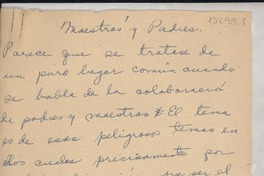 15299.1
Maestros y Padres.
Parece que se tratase de
un puro lugar común cuando
se habla de la colaboración
de padres y maestros. El tema
es de esos peligrosos temas en
los cuales precisamente por
ser el